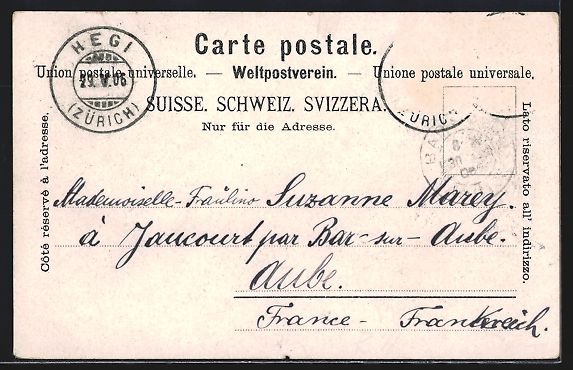 Carte postale.
Union postale universelle. — Weltpostverein. — Unione postale universale,
SUISSE. SCHWEIZ. SVIZZERA.
Nur für die Adresse.
HEGI
29. V. 06
(ZÜRICH)
ZÜRICH
Côté réservé à l'adresse.
Lato riservato all' indirizzo.
Mademoiselle - Fräulino Suzanne Marey.
à Jaucourt par Bar-sur-Aube.
Aube.
France - Frankreich.